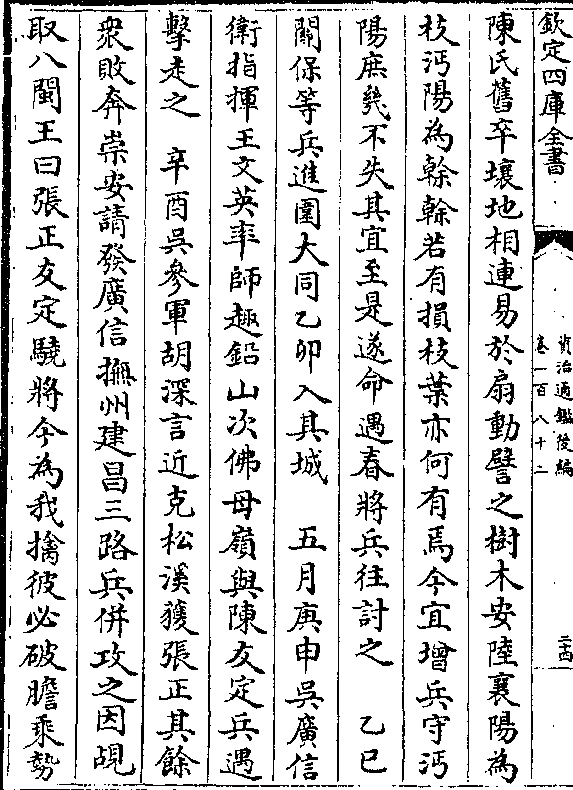 欽定四庫全書
資治通鑑後編
卷一百八十二
二十四
陳氏舊卒壤地相連易於扇動譬之樹木安陸襄陽為
枝沔陽為榦榦若有損枝葉亦何有焉今宜增兵守沔
陽庶幾不失其宜至是遂命遇春將兵往討之　乙巳
關保等兵進圍大同乙卯入其城　五月庚申吳廣信
衛指揮王文英率師趣鉛山次佛母嶺與陳友定兵遇
擊走之　辛酉吳參軍胡深言近克松溪獲張正其餘
衆敗奔崇安請發廣信撫州建昌三路兵併攻之因覘
取八閩王曰張正友定驍將今為我擒彼必破膽乘勢